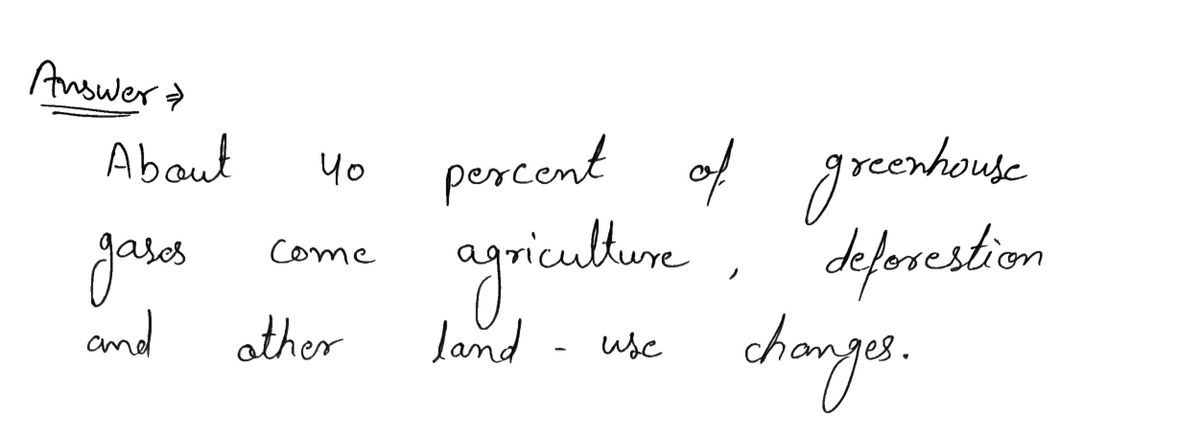 Answer ⇒
About 40 percent of greenhouse
gases come agriculture, deforestion
and other land - use changes.